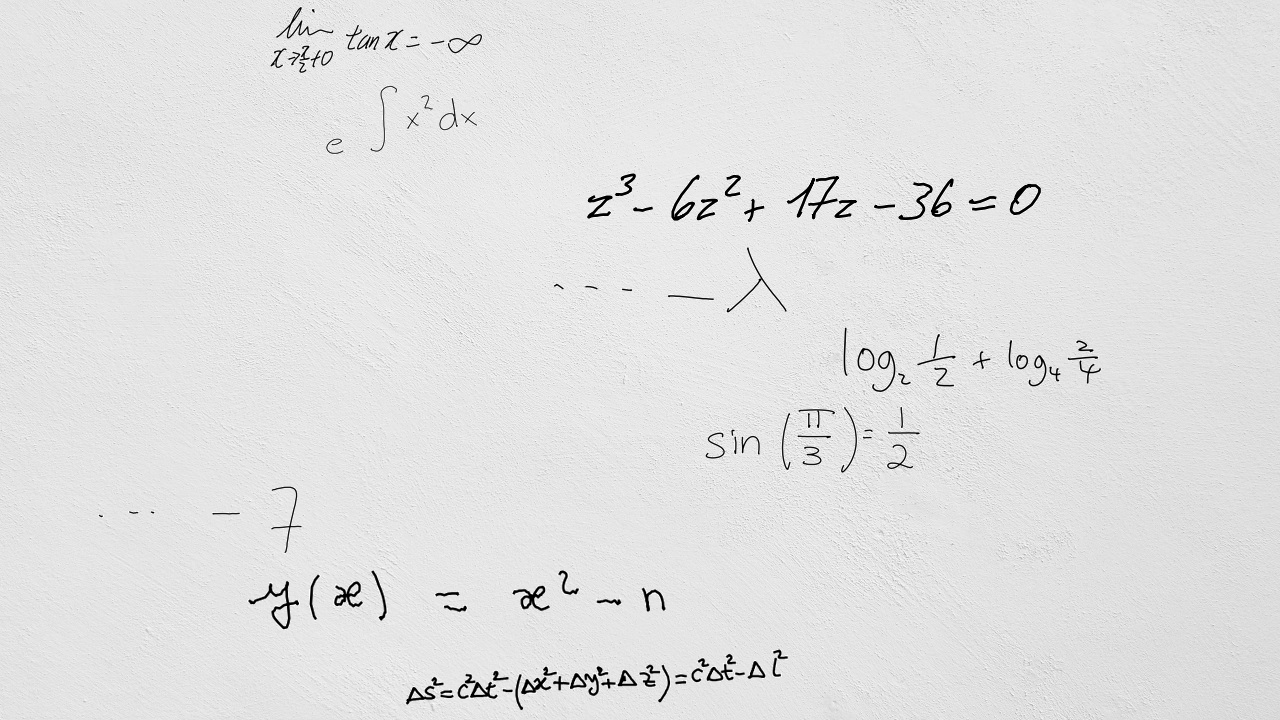 lim x→π/2+0 tan x = -∞
e ∫ x² dx
z³ - 6z² + 17z - 36 = 0
... - λ
log₂ 1/2 + log₄ 2/4
sin (π/3) = 1/2
... - 7
y(x) = x² - n
Δs² = c²Δt² - (Δx² + Δy² + Δz²) = c²Δt² - Δl²